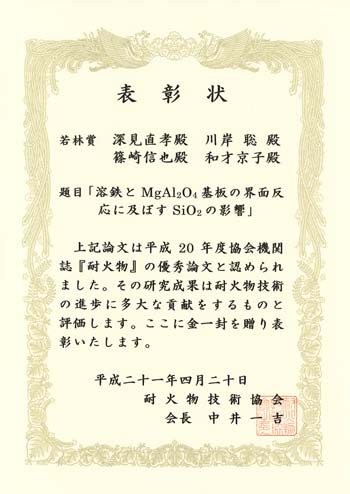 表彰状
若林賞 深見直孝殿 川岸 聡 殿
篠崎信也殿 和才京子殿
題目「溶鉄と MgAl₂O₄ 基板の界面反
応に及ぼす SiO₂ の影響」
上記論文は平成 20 年度協会機関
誌『耐火物』の優秀論文と認められ
ました。その研究成果は耐火物技術
の進歩に多大な貢献をするものと
評価します。ここに金一封を贈り表
彰いたします。
平成二十一年四月二十日
耐火物技術協会
会長 中井一吉